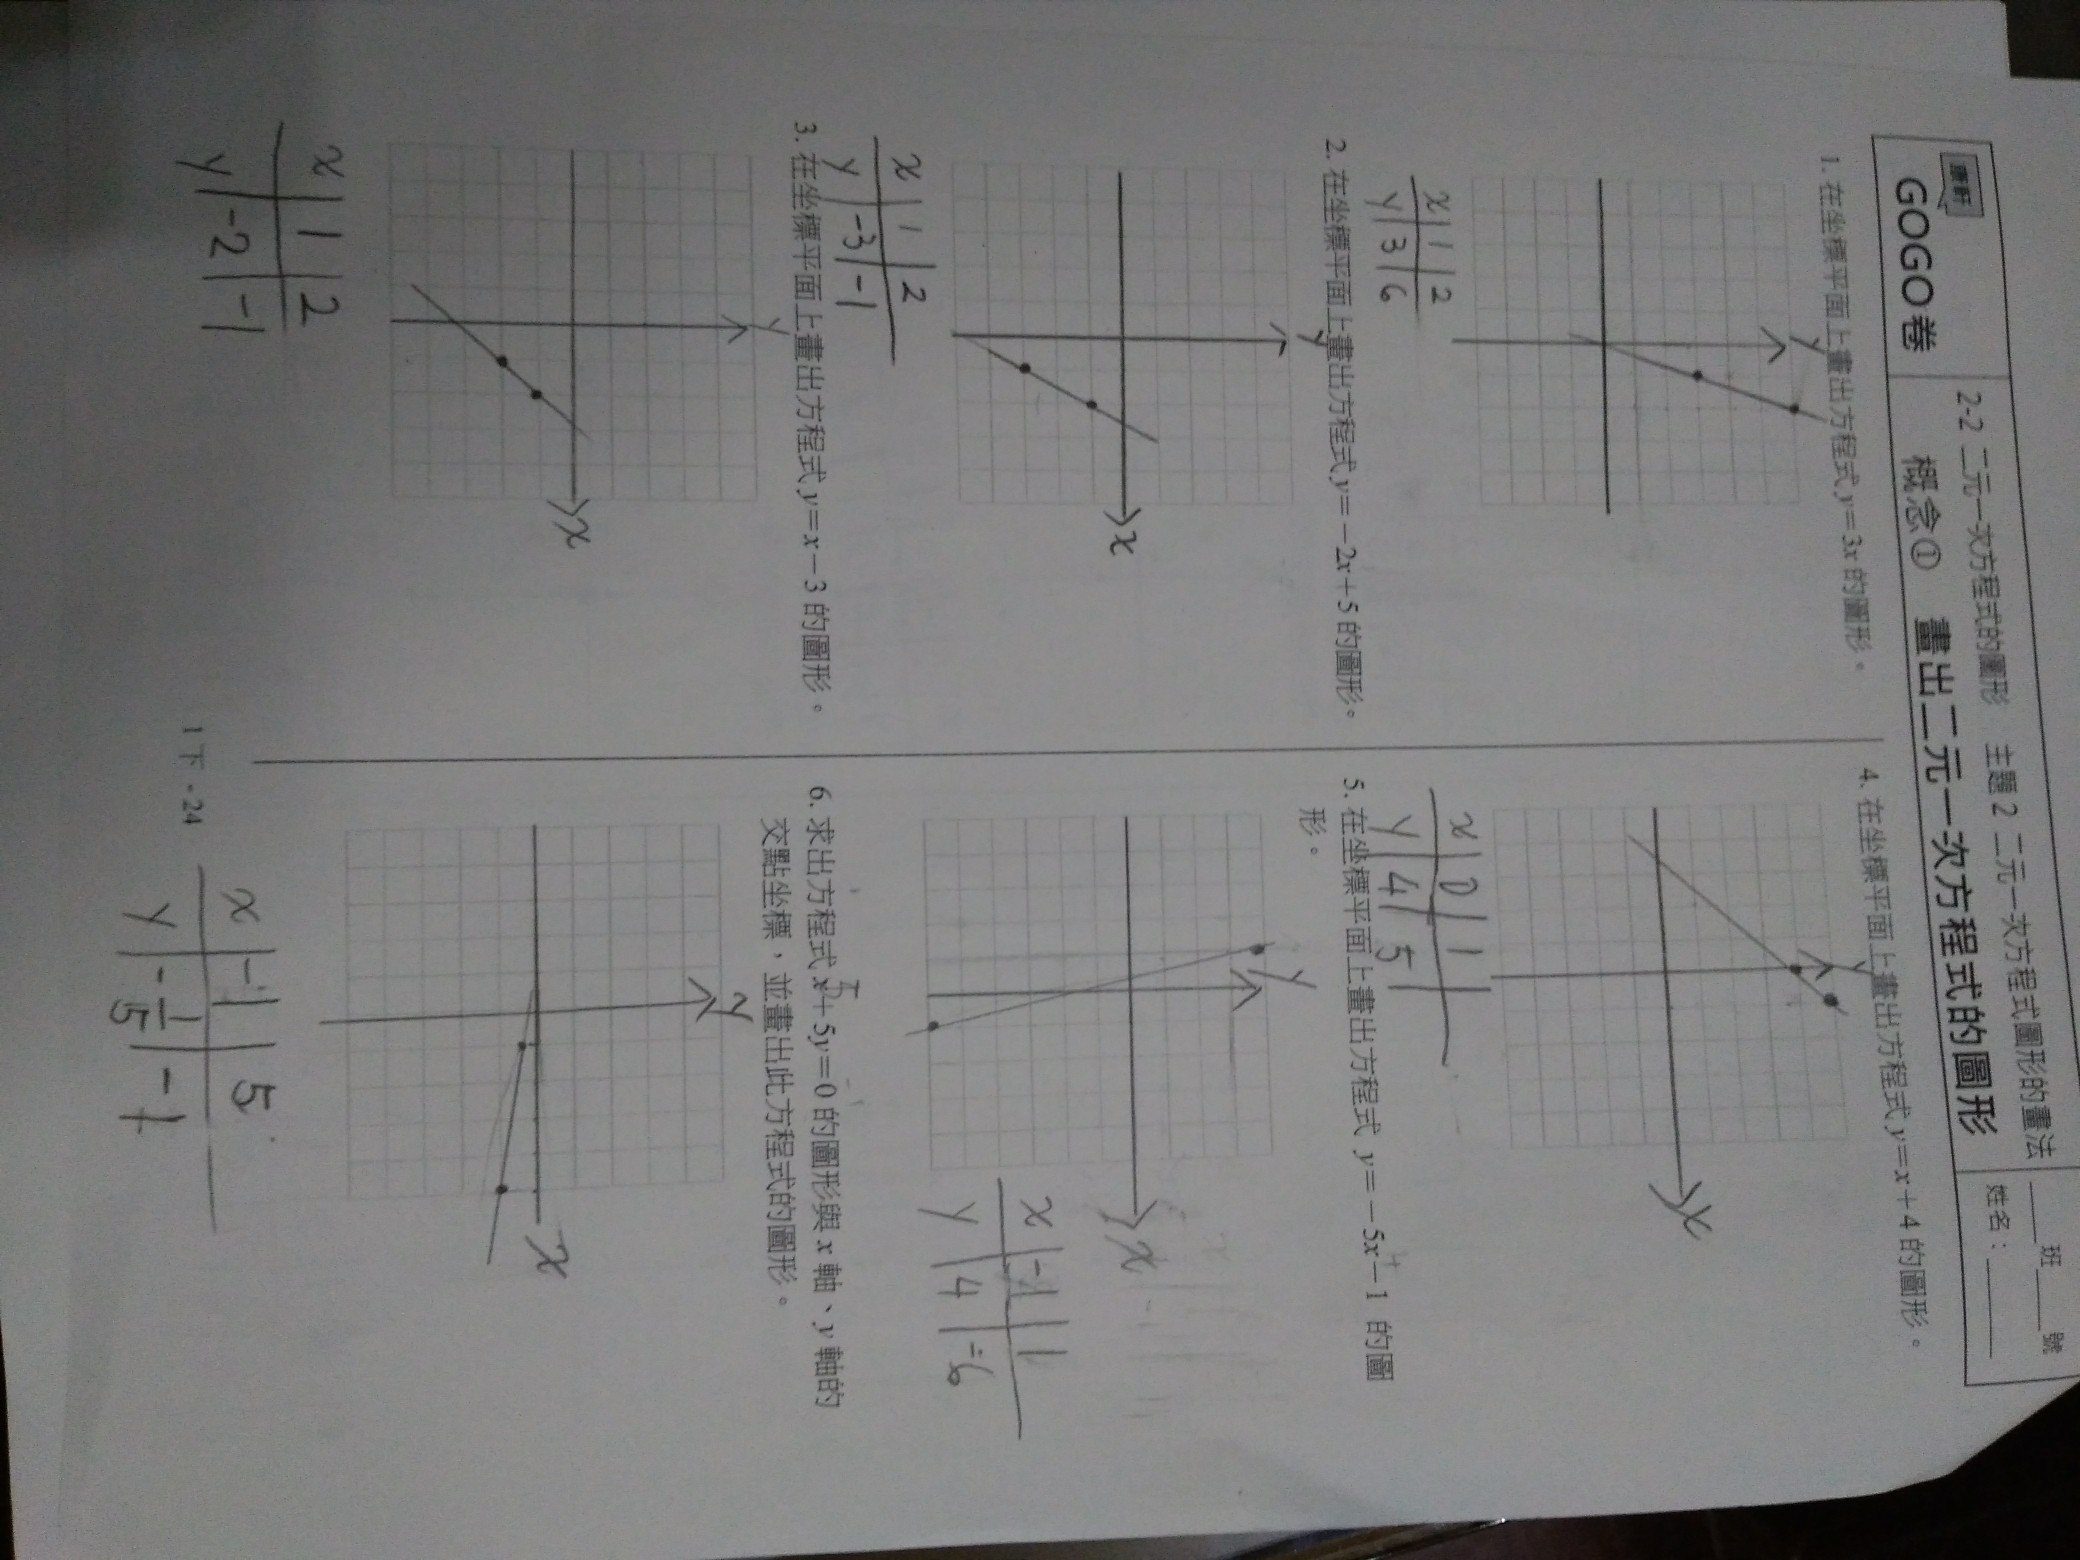 康軒
GOGO卷
2-2 二元一次方程式的圖形 主題2 二元一次方程式圖形的畫法
概念① 畫出二元一次方程式的圖形
____班____號
姓名：________
1. 在坐標平面上畫出方程式 y=3x 的圖形。
y
x | 1 | 2
y | 3 | 6
2. 在坐標平面上畫出方程式 y=-2x+5 的圖形。
y
x
x | 1 | 2
y | -3 | -1
3. 在坐標平面上畫出方程式 y=x-3 的圖形。
y
x
x | 1 | 2
y | -2 | -1
4. 在坐標平面上畫出方程式 y=x+4 的圖形。
y
x
x | 0 | 1
y | 4 | 5
5. 在坐標平面上畫出方程式 y=-5x-1 的圖
形。
y
x
x | -1 | 1
y | 4 | -6
6. 求出方程式 x+5y=0 的圖形與 x 軸、y 軸的
交點坐標，並畫出此方程式的圖形。
y
x
x | -1 | 5
y | -1/5 | -1
1下-24